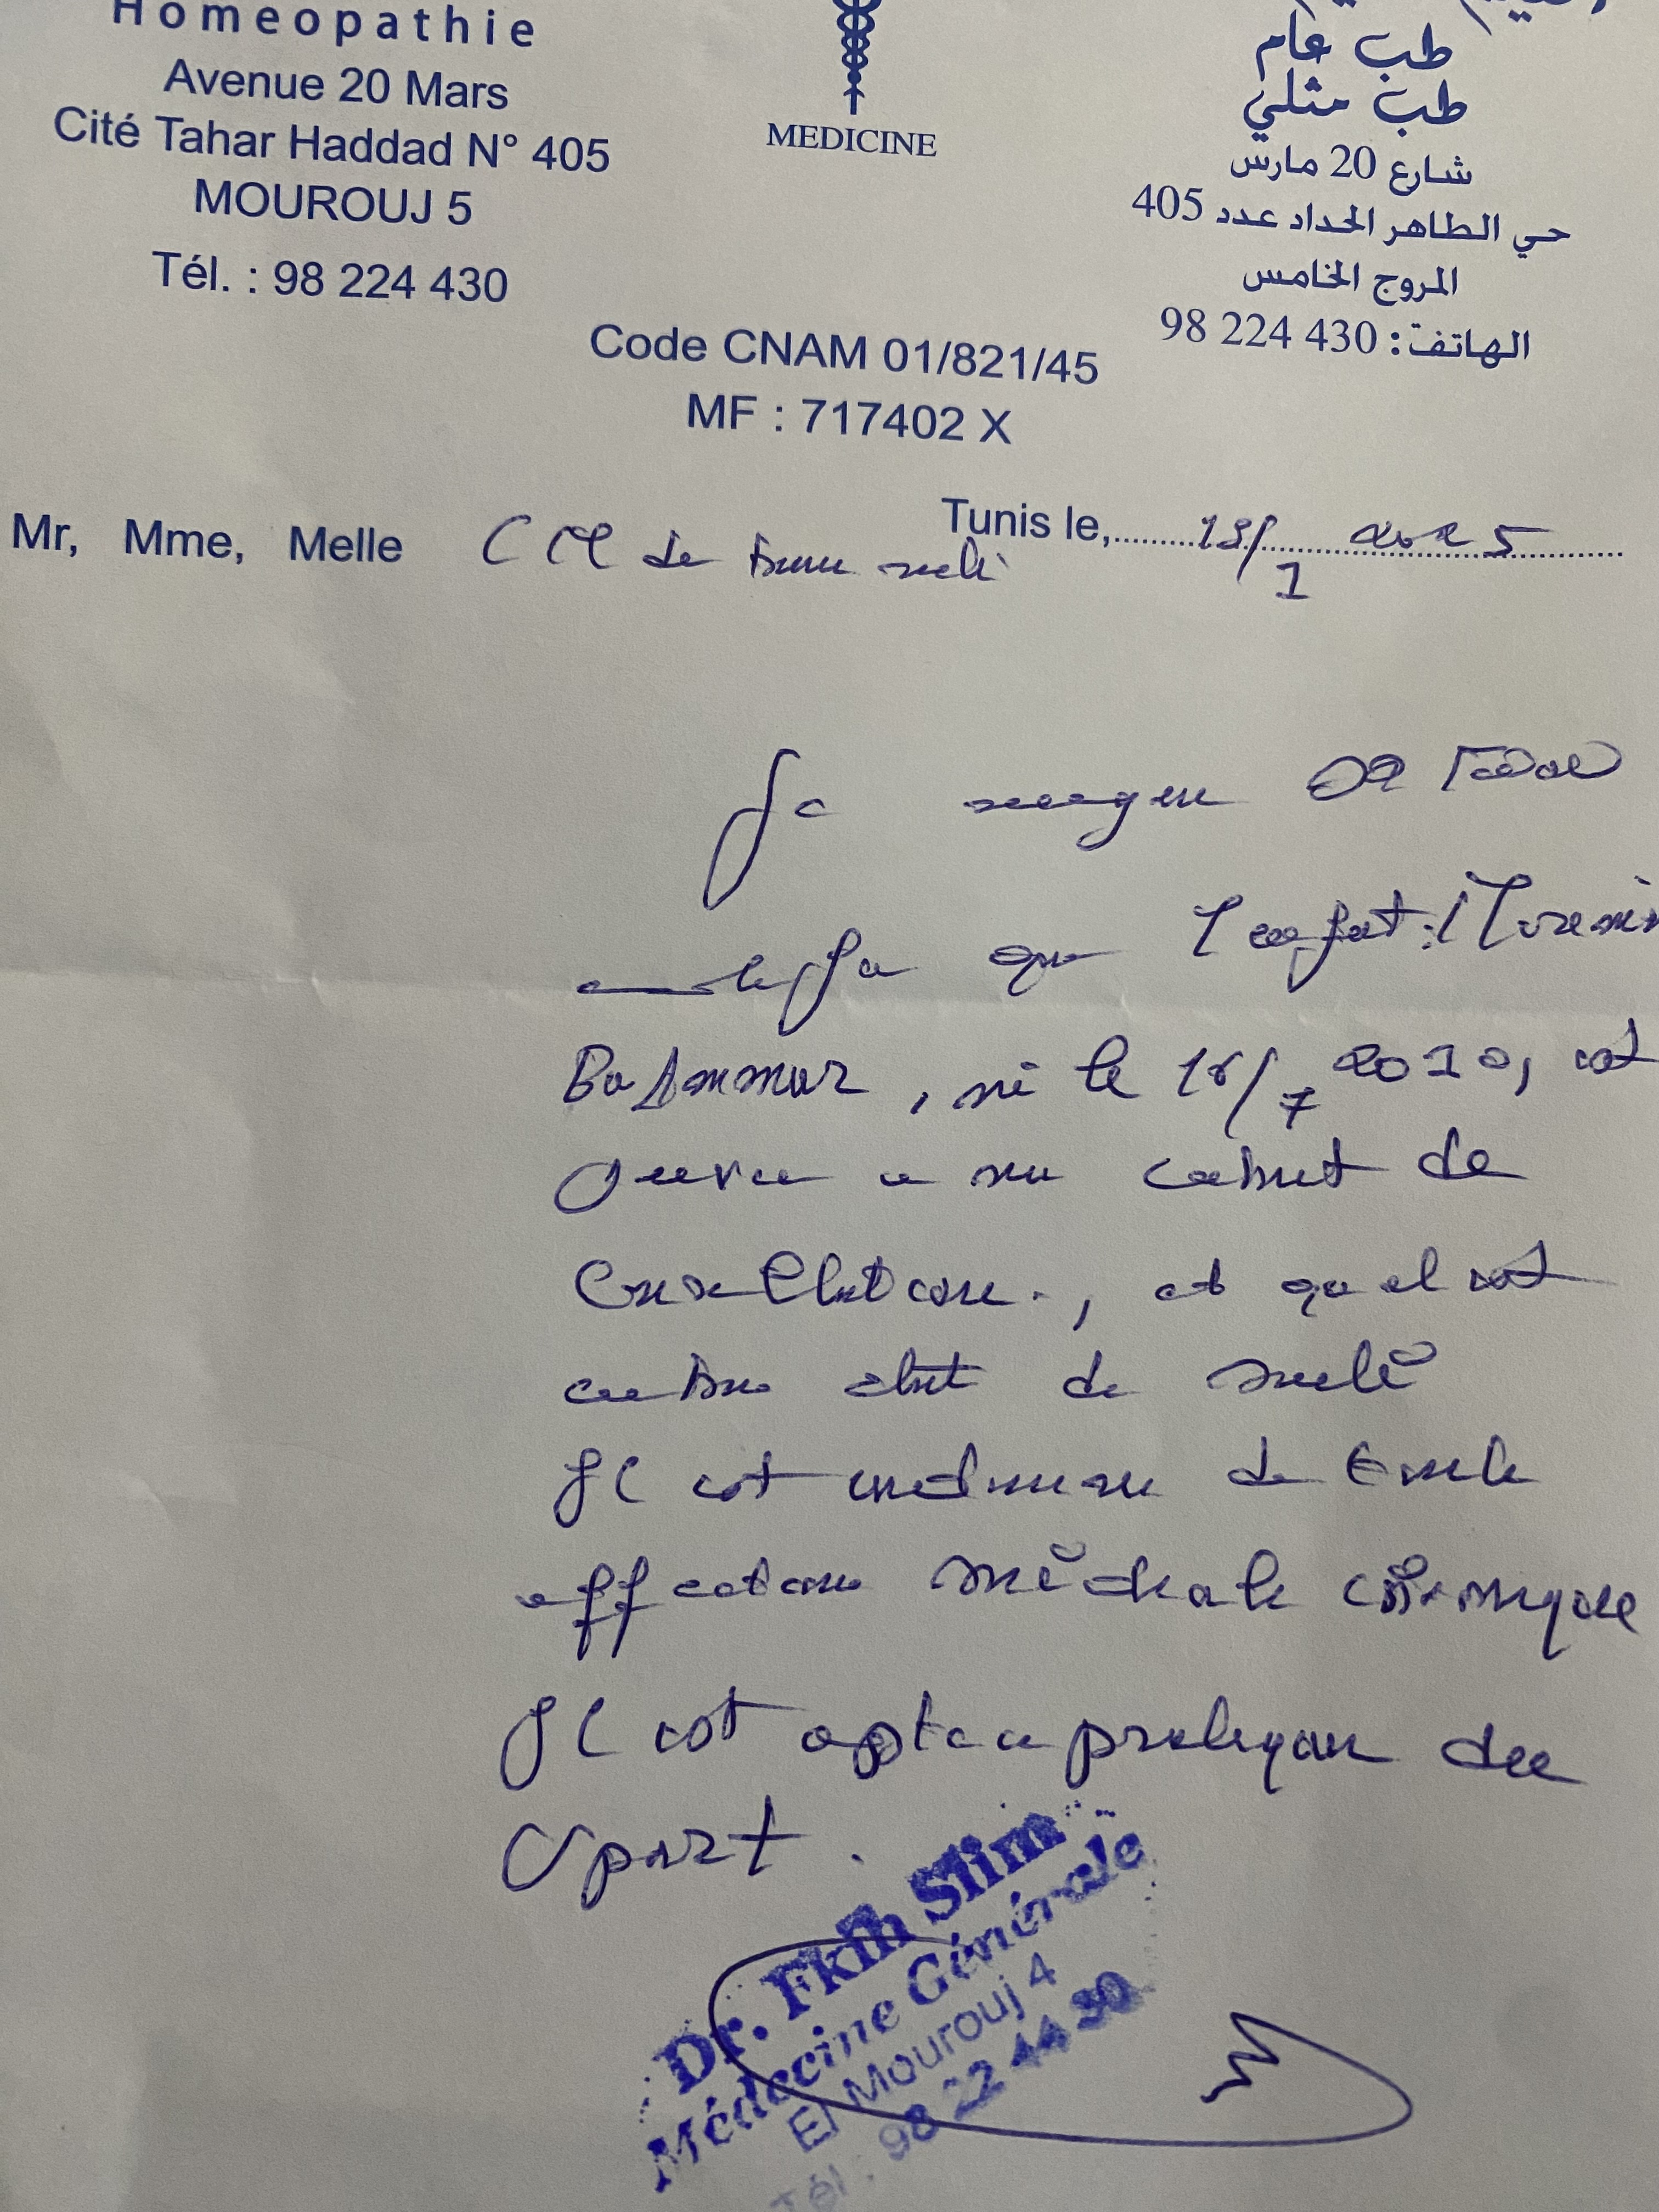 Homeopathie
Avenue 20 Mars
Cité Tahar Haddad N° 405
MOUROUJ 5
Tél. : 98 224 430
MEDICINE
طب عام
طب مثلي
شارع 20 مارس
حي الطاهر الحداد عدد 405
المروج الخامس
الهاتف: 98 224 430
Code CNAM 01/821/45
MF : 717402 X
Tunis le, 2025
Mr, Mme, Melle CM de bonne santé
Je soussigné DR
certifie que l'enfant :
Ben Ammar, né le 16/7 2010, est
venu à mon cabinet de
Consultation, et qu'il est
en bon état de santé
Il est indemne de toute
affection médicale chronique
Il est apte à pratiquer du
Sport.
Dr. Fkih Slim
Médecine Générale
El Mourouj 4
Tél : 98 22 44 30